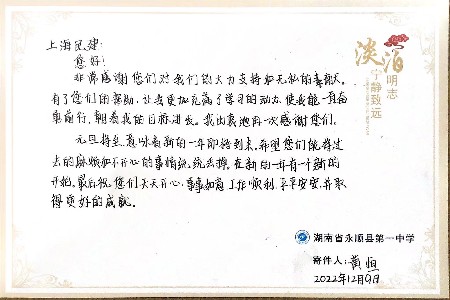 上海民建:
您好!
非常感谢您们对我们的大力支持和无私的奉献,
有了您们的帮助,让我更加充满了学习的动力,使我能一直奋
勇前行,朝着我的目标进发。我由衷地再一次感谢您们。
元旦将至,意味着新的一年即将到来,希望您们能将过
去的麻烦和不开心的事情统统丢掉,在新的一年有个新的
开始。最后祝您们天天开心,事事如意,工作顺利,平平安安,并取
得更好的成就。
淡泊明志
宁静致远
湖南省永顺县第一中学
寄件人:黄恒
2022年12月9日